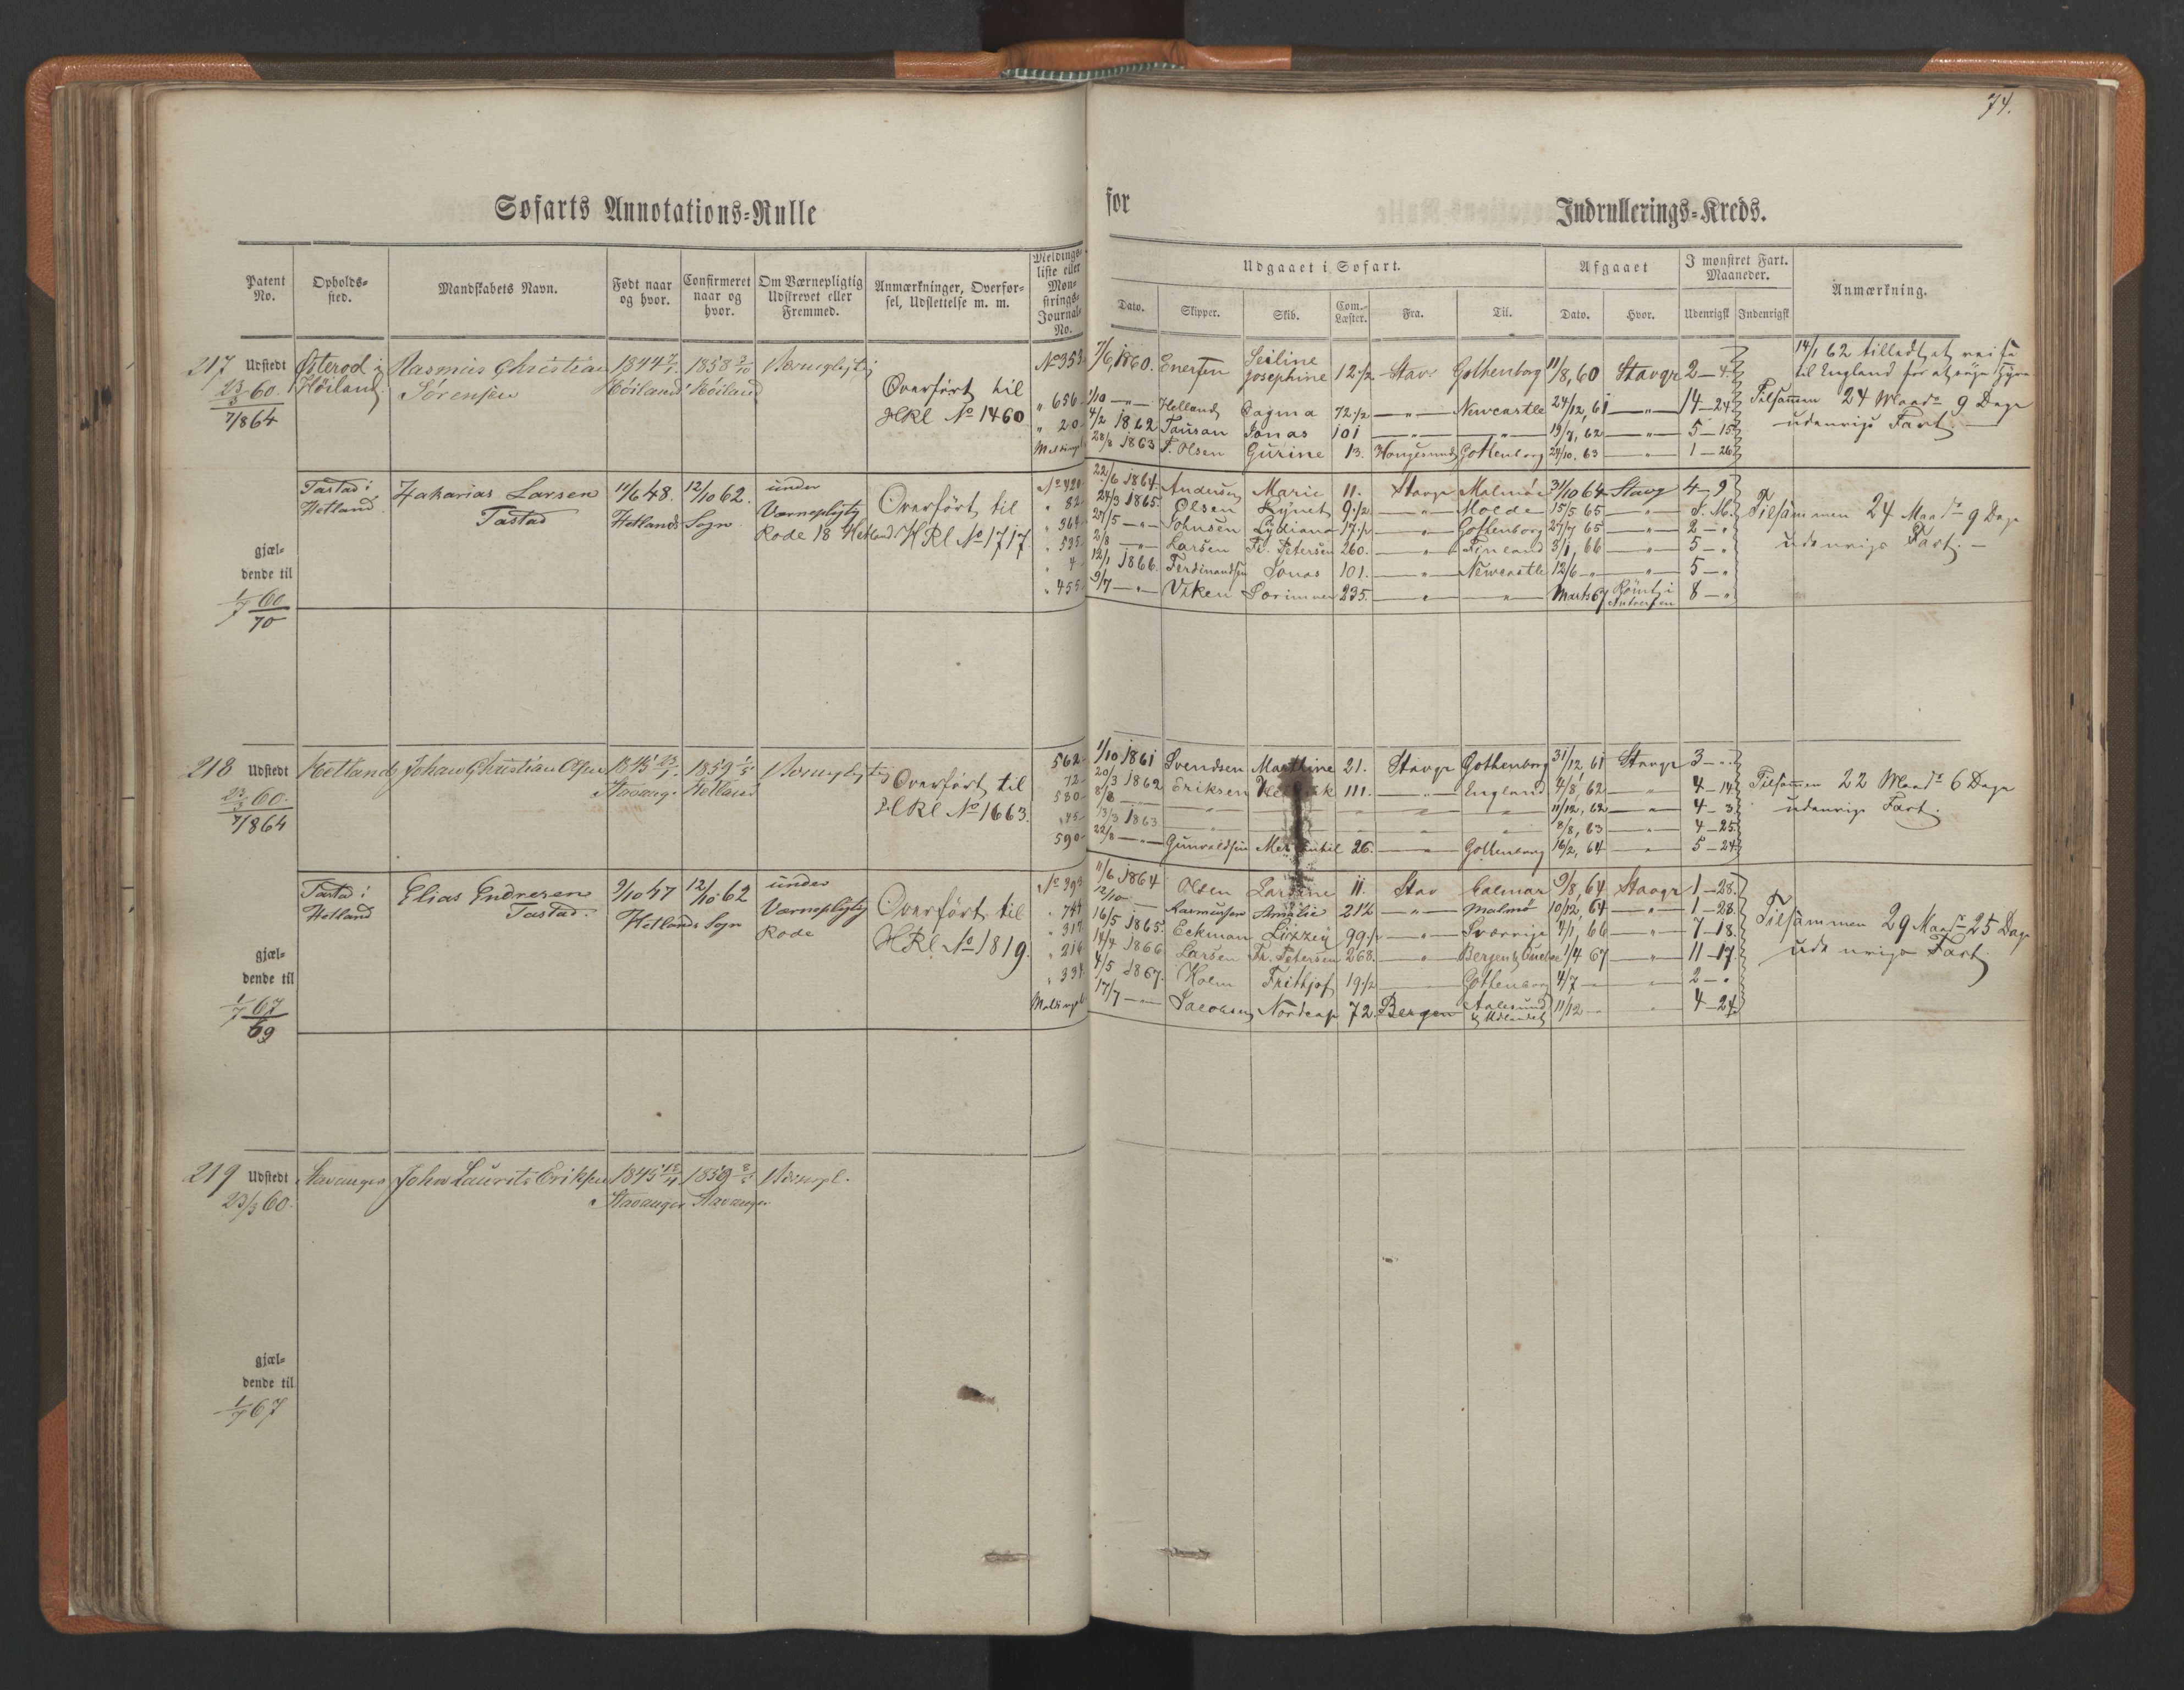 74.
Søfarts Annotations-Rulle for Indrullerings-Kreds.
Patent No.
Opholds-sted.
Mandskabets Navn.
Født naar og hvor.
Confirmeret naar og hvor.
Om Værnepligtig Udskrevet eller Fremmed.
Anmærkninger, Overfør-sel, Udslettelse m. m.
Meldings-liste eller Mønstrings-Journal-No.
Udgaaet i Søfart.
Afgaaet
I mønstret Fart. Maaneder.
Anmærkning.
Dato. Skipper. Skib. Com.-Læster. Fra. Til. Dato. Hvor. Udenrigst Indenrigst
217 Udstedt Østerod i Rasmus Christian 1844 1858 Værnepligtig
23/3 60. Høiland. Sørensen Høiland Høiland
7/864
Overført til
HRl No 1460
No 353. 7/6 1860. Enersen Seiline Josephine 12 1/2 Stav. Gothenborg 11/8, 60 Stavgr 2 – 4.
" 656. 1/10 — " — Helland Dagma 72 1/2 — " — Newcastle 24/12, 61 — " — 14 – 24
" 20. 4/2 1862 Tausan Jonas 101 — " — — " — 19/7, 62 — " — 5 – 15
28/8 1863 T. Olsen Gurine 13. Haugesund Gothenborg 24/10. 63 — " — 1 – 26
14/1 62 tilladt at reise
til England for at søge Hyre
Tilsammen 24 Maadr 9 Dage
udenrigs Fart
Tastad i Zakarias Larsen 11/6 48. 12/10 62. under
Hetland. Tastad Hetlands Sogn Værnepligtig
Rode 18 Hetland.
Overført til
HRl No 1717.
22/6 1864. Andersen Marie 11. Stavgr Malmøe 31/10 64 Stavg 4 – 9
" 82. 24/3 1865. Olsen 9 1/2 — " — Molde 15/5 65 — " —
" 364. 27/5 — " — Johnsen Lydiana 17 1/2 — " — Gothenborg 27/7 65 — " — 2 – "
" 535. 2/8 — " — Larsen Fr. Petersen 260. — " — Finland 3/1, 66 — " — 5 – "
" 4. 12/1 1866. Ferdinandsen Jonas 101. — " — Newcastle 12/6 — " — 5 – "
" 455. 9/7 — " — Viken 235. — " — " Marts 67 Rømt i Antverpen 8 – "
Tilsammen 24 Maadr 9 Dage
udenrigs Fart. –
gjæl-
dende til
1/7 60
70
218 Udstedt Hetland Johan Christian Olsen 1845 23/1. 1859 Værnepligtig
23/3 60. Stavanger Hetland
7/864
Overført til
HRl No 1663.
562. 1/10 1861 Svendsen Marthine 21. Stavgr Gothenborg 31/12 61 Stavgr 3 – "
72. 20/3 1862 Eriksen 111. — " — England 4/8, 62 — " — 4 – 14
580. 8/8 — " — " " " 11/12, 62 — " — 4 – 3
" 45. 13/3 1863 — " — " " " 8/8, 63 — " — 4 – 25
590. 22/8 — " — Gunvaldsen 26. — " — Gothenborg 16/2, 64 — " — 5 – 24
Tilsammen 22 Maadr 6 Dage
udenrigs Fart.
Tastad i Elias Endresen 9/10 47 12/10 62 under
Hetland Tastad. Hetlands Sogn Værnepligtig
Rode
Overført til
HRl No 1819.
No 393 11/6 1864 Olsen 11. Stav Calmar 9/8, 64 Stavgr 1 – 28.
" 744 12/10 — Rasmussen Amalie 21 1/2 — " — Malmø 10/12, 64 — " — 1 – 28.
" 317. 16/5 1865. Eckman Lizzey 99 1/2 — " — Sverrige 4/1, 66 — " — 7 – 18.
" 216 14/4 1866 Larsen Fr. Petersen 268. — " — 1/4 67 — " — 11 – 17
" 331. 4/5 1867. Holm Frithjof 19 1/2 Gothenborg 4/7 — 2 – "
17/7 — Jacobsen Nordcap 72. Bergen Aalesund & Udlandet 11/12 — 4 – 24
Tilsammen 29 Maadr 25 Dage
udenrigs Fart.
gjæl-
dende til
1/7 67
69
219 Udstedt Stavanger John Laurits Eriksen 1845 1859 Værnepl.
23/3 60. Stavanger Stavanger
gjæl-
dende til
1/7 67